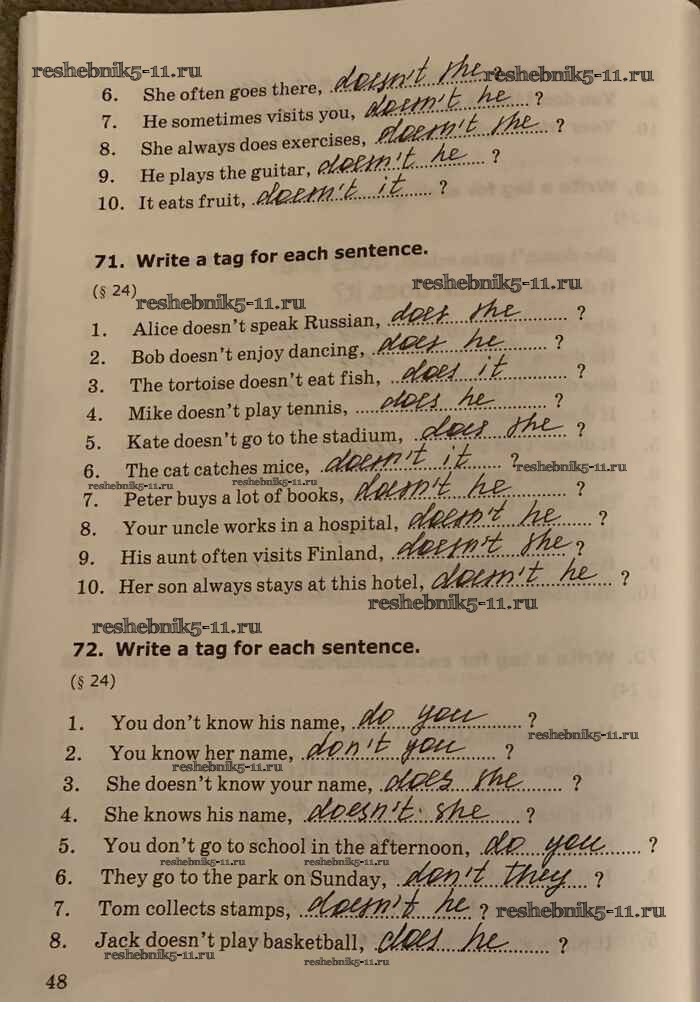 reshebnik5-11.ru
6. She often goes there, doesn't she ?
reshebnik5-11.ru
7. He sometimes visits you, doesn't he ?
8. She always does exercises, doesn't she ?
9. He plays the guitar, doesn't he ?
10. It eats fruit, doesn't it ?
71. Write a tag for each sentence.
(§ 24)
reshebnik5-11.ru
reshebnik5-11.ru
1. Alice doesn't speak Russian, does she ?
2. Bob doesn't enjoy dancing, does he ?
3. The tortoise doesn't eat fish, does it ?
4. Mike doesn't play tennis, does he ?
5. Kate doesn't go to the stadium, does she ?
6. The cat catches mice, doesn't it ?
reshebnik5-11.ru
reshebnik5-11.ru
reshebnik5-11.ru
7. Peter buys a lot of books, doesn't he ?
8. Your uncle works in a hospital, doesn't he ?
9. His aunt often visits Finland, doesn't she ?
10. Her son always stays at this hotel, doesn't he ?
reshebnik5-11.ru
reshebnik5-11.ru
72. Write a tag for each sentence.
(§ 24)
1. You don't know his name, do you ?
reshebnik5-11.ru
2. You know her name, don't you ?
reshebnik5-11.ru
3. She doesn't know your name, does she ?
4. She knows his name, doesn't she ?
5. You don't go to school in the afternoon, do you ?
reshebnik5-11.ru
reshebnik5-11.ru
6. They go to the park on Sunday, don't they ?
7. Tom collects stamps, doesn't he ?
reshebnik5-11.ru
8. Jack doesn't play basketball, does he ?
reshebnik5-11.ru
reshebnik5-11.ru
48